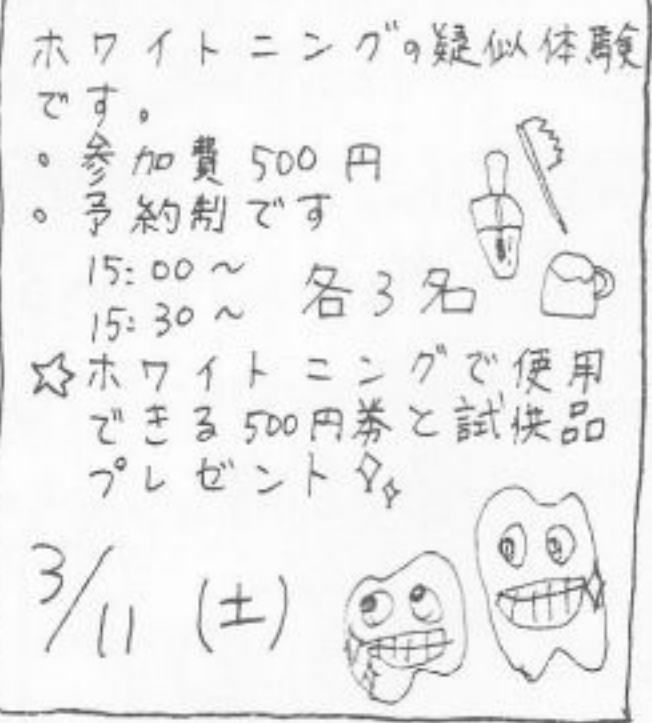 ホワイトニングの疑似体験
です。
・参加費500円
・予約制です
15:00～
15:30～ 各3名
☆ホワイトニングで使用
できる500円券と試供品
プレゼント
3/11 (土)